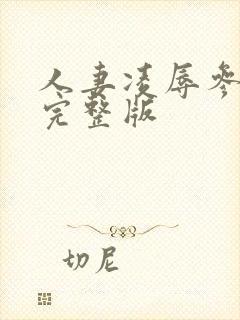 人妻凌辱参
完整版
切尼